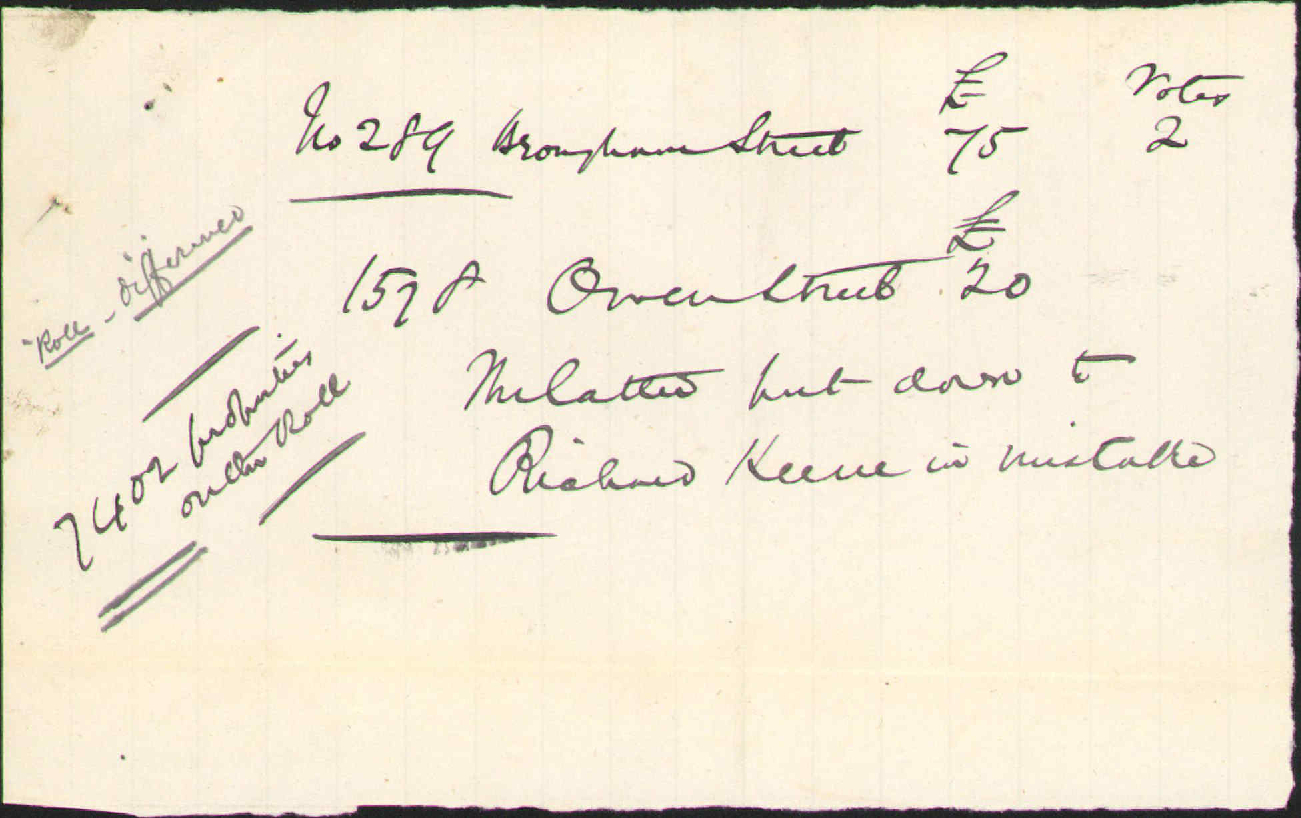 £ Votes
No 289 Brougham Street 75 2
£
1598 Owen Street 20
The latter put down to
Richard Keene in mistake
Roll - difference
7402 properties
on the Roll